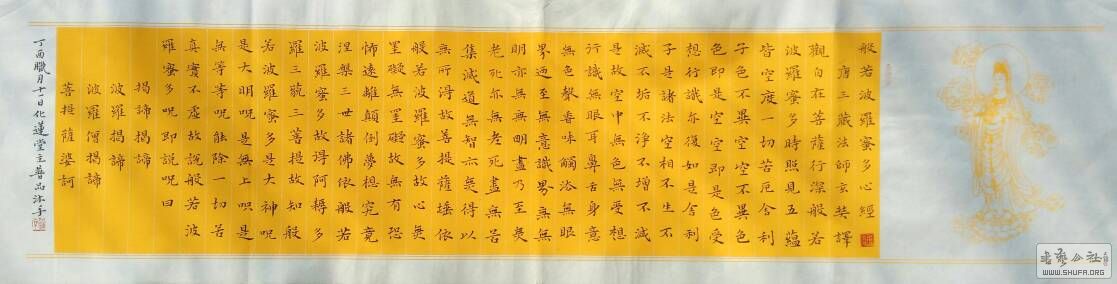 般若波羅蜜多心經
唐三藏法師玄奘譯
觀自在菩薩行深般若
波羅蜜多時照見五蘊
皆空度一切苦厄舍利
子色不異空空不異色
色即是空空即是色受
想行識亦復如是舍利
子是諸法空相不生不
滅不垢不淨不增不減
是故空中無色無受想
行識無眼耳鼻舌身意
無色聲香味觸法無眼
界迺至無意識界無無
明亦無無明盡乃至無
老死亦無老死盡無苦
集滅道無智亦無得以
無所得故菩提薩埵依
般若波羅蜜多故心無
罣礙無罣礙故無有恐
怖遠離顛倒夢想究竟
涅槃三世諸佛依般若
波羅蜜多故得阿耨多
羅三藐三菩提故知般
若波羅蜜多是大神呪
是大明呪是無上呪是
無等等呪能除一切苦
真實不虛故說般若波
羅蜜多呪即說呪曰
揭諦揭諦
波羅揭諦
波羅僧揭諦
菩提薩婆訶
丁酉臘月十一日化蓮堂主普品沐手
書藝公社
WWW.SHUFA.ORG